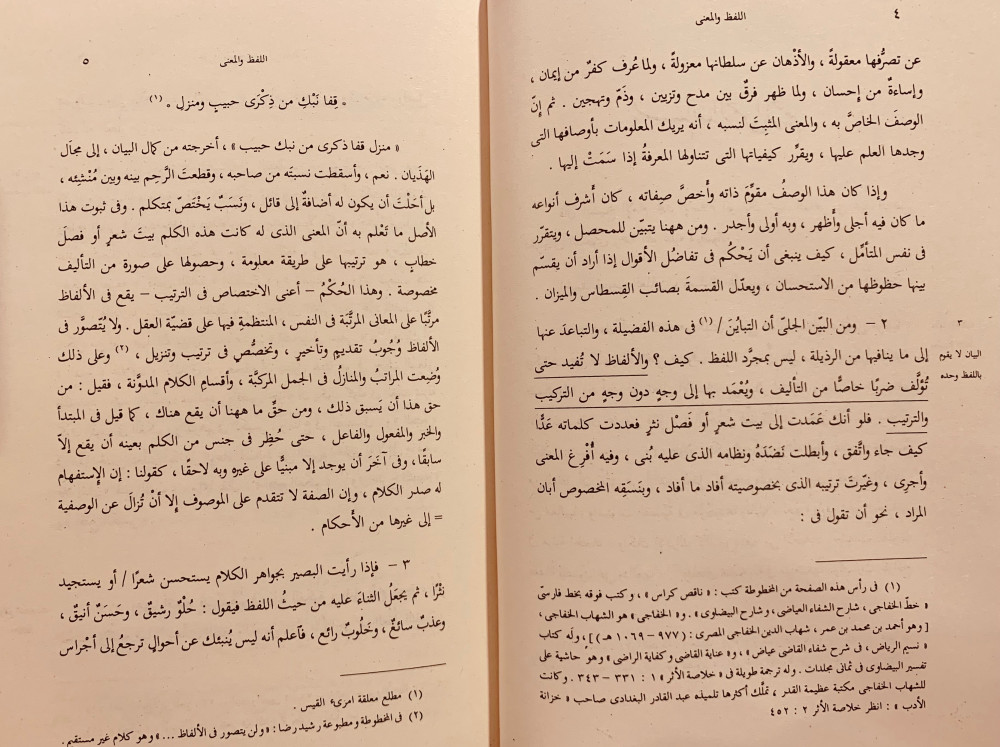 ٤
اللفظ والمعنى
عن تصرُّفها معقولةً ، والأذْهان عن سلطانها معزولةً ، ولما عُرف كفرٌ من إيمان ،
وإساءةٌ من إحسان ، ولما ظهر فرقٌ بين مدح وتزيين ، وذَمّ وتهجين . ثم إنّ
الوصفَ الخاصَّ به ، والمعنى المثبِتَ لنسبه ، أنه يريك المعلومات بأوصافها التى
وجدها العلم عليها ، ويقرِّر كيفياتها التى تتناولها المعرفةُ إذا سَمَتْ إليها .
وإذا كان هذا الوصفُ مقوِّمَ ذاته وأخصَّ صِفاته ، كان أشرف أنواعه
ما كان فيه أجلى وأظهر ، وبه أولى وأجدر . ومن ههنا يتبيّن للمحصل ، ويتقرّر
فى نفس المتأمِّل ، كيف ينبغى أن يَحْكُم فى تفاضُل الأقوال إذا أراد أن يقسّم
بينها حظوظها من الاستحسان ، ويعدّل القسمةَ بصائب القِسطاس والميزان .
٢ – ومن البيّن الجلىّ أن التبايُنَ / (١) فى هذه الفضيلة ، والتباعدَ عنها
٣
إلى ما ينافيها من الرذيلة ، ليس بمجرَّد اللفظ . كيف ؟ والألفاظ لا تُفيد حتى
البيان لا يقوم
باللفظ وحده
تُؤلَّف ضربًا خاصًّا من التأليف ، ويُعْمَد بها إلى وجهٍ دون وجهٍ من التركيب
والترتيب . فلو أنك عَمَدت إلى بيت شعرٍ أو فَصْل نثرٍ فعددت كلماته عَدًّا
كيف جاء واتَّفق ، وأبطلت نَضَدَهُ ونظامه الذى عليه بُنى ، وفيه أُفْرِغ المعنى
وأجرِى ، وغيّرتَ ترتيبه الذى بخصوصيته أفاد ما أفاد ، وبنَسَقِه المخصوص أبان
المراد ، نحو أن تقول فى :
(١) فى رأس هذه الصفحة من المخطوطة كتب : « ناقص كراس » ، وكتب فوقه بخط فارسىّ
« خطّ الخفاجى ، شارح الشفاء العياضى ، وشارح البيضاوى » . و« الخفاجى » هو الشهاب الخفاجى ،
[ وهو أحمد بن محمد بن عمر ، شهاب الدين الخفاجى المصرى : ( ٩٧٧ – ١٠٦٩ هـ ) ] ، وله كتاب
« نسيم الرياض ، فى شرح شفاء القاضى عياض » ، و« عناية القاضى وكفاية الراضى » وهو حاشية على
تفسير البيضاوى فى ثمانى مجلدات . وله ترجمة طويلة فى « خلاصة الأثر » ١ : ٣٣١ – ٣٤٣ . وكانت
للشهاب الخفاجى مكتبة عظيمة القدر ، تملَّك أكثرها تلميذه عبد القادر البغدادى صاحب « خزانة
الأدب » : انظر خلاصة الأثر ٢ : ٤٥٢
اللفظ والمعنى
٥
* قِفا نَبْكِ من ذِكْرَى حبيبٍ ومنزلِ * (١)
« منزل قفا ذكرى من نبك حبيب » ، أخرجته من كمال البيان ، إلى مجاَل
الهَذَيان . نعم ، وأسقطت نسبتَه من صاحبه ، وقطعتَ الرَّحِم بينه وبين مُنْشِئه ،
بل أحَلْتَ أن يكون له أضافةٌ إلى قائل ، ونَسَبٌ يَخْتَصّ بمتكلم . وفى ثبوت هذا
الأصل ما تَعْلم به أنّ المعنى الذى له كانت هذه الكلم بيتَ شعرٍ أو فصلَ
خطابٍ ، هو ترتيبها على طريقة معلومة ، وحصولها على صورة من التأليف
مخصوصة . وهذا الحُكْمُ – أعنى الاختصاص فى الترتيب – يقع فى الألفاظ
مرتَّبًا على المعانى المرتَّبَة فى النفس ، المنتظمةِ فيها على قضيّة العقل . ولا يُتَصوَّر فى
الألفاظ وُجُوبُ تقديم وتأخيرٍ ، وتخصُّصٍ فى ترتيب وتنزيل ، (٢) وعلى ذلك
وُضِعت المراتبُ والمنازلُ فى الجمل المركبَّة ، وأقسامِ الكلام المدوَّنة ، فقيل : من
حق هذا أن يَسبق ذلك ، ومن حقِّ ما ههنا أن يقع هناك ، كما قيل فى المبتدأ
والخبر والمفعول والفاعل ، حتى حُظِر فى جنس من الكلم بعينه أن يقع إلاّ
سابقًا ، وفى آخَرَ أن يوجد إلا مبنيًّا على غيره وبه لاحقًا ، كقولنا : إن الإستفهام
له صدر الكلام ، وإن الصفة لا تتقدم على الموصوف إلا أنْ تُزالَ عن الوصفية
= إلى غيرها من الأحكام .
٣ – فإذا رأيت البصير بجواهر الكلام يستحسن شعرًا / أو يستجيد
نثْرًا ، ثم يجعَلُ الثناءَ عليه من حيثُ اللفظ فيقول : حُلْوٌ رشيقٌ ، وحَسَنٌ أنيقٌ ،
وعذبٌ سائغٌ ، وخَلُوبٌ رائع ، فاَعلم أنه ليس يُنبئك عن أحوالٍ ترجعُ إلى أجْراس
(١) مطلع معلقة امرىء القيس .
(٢) فى المخطوطة ومطبوعة رشيد رضا : « ولن يتصور فى الألفاظ ... » وهو كلام غير مستقيم .